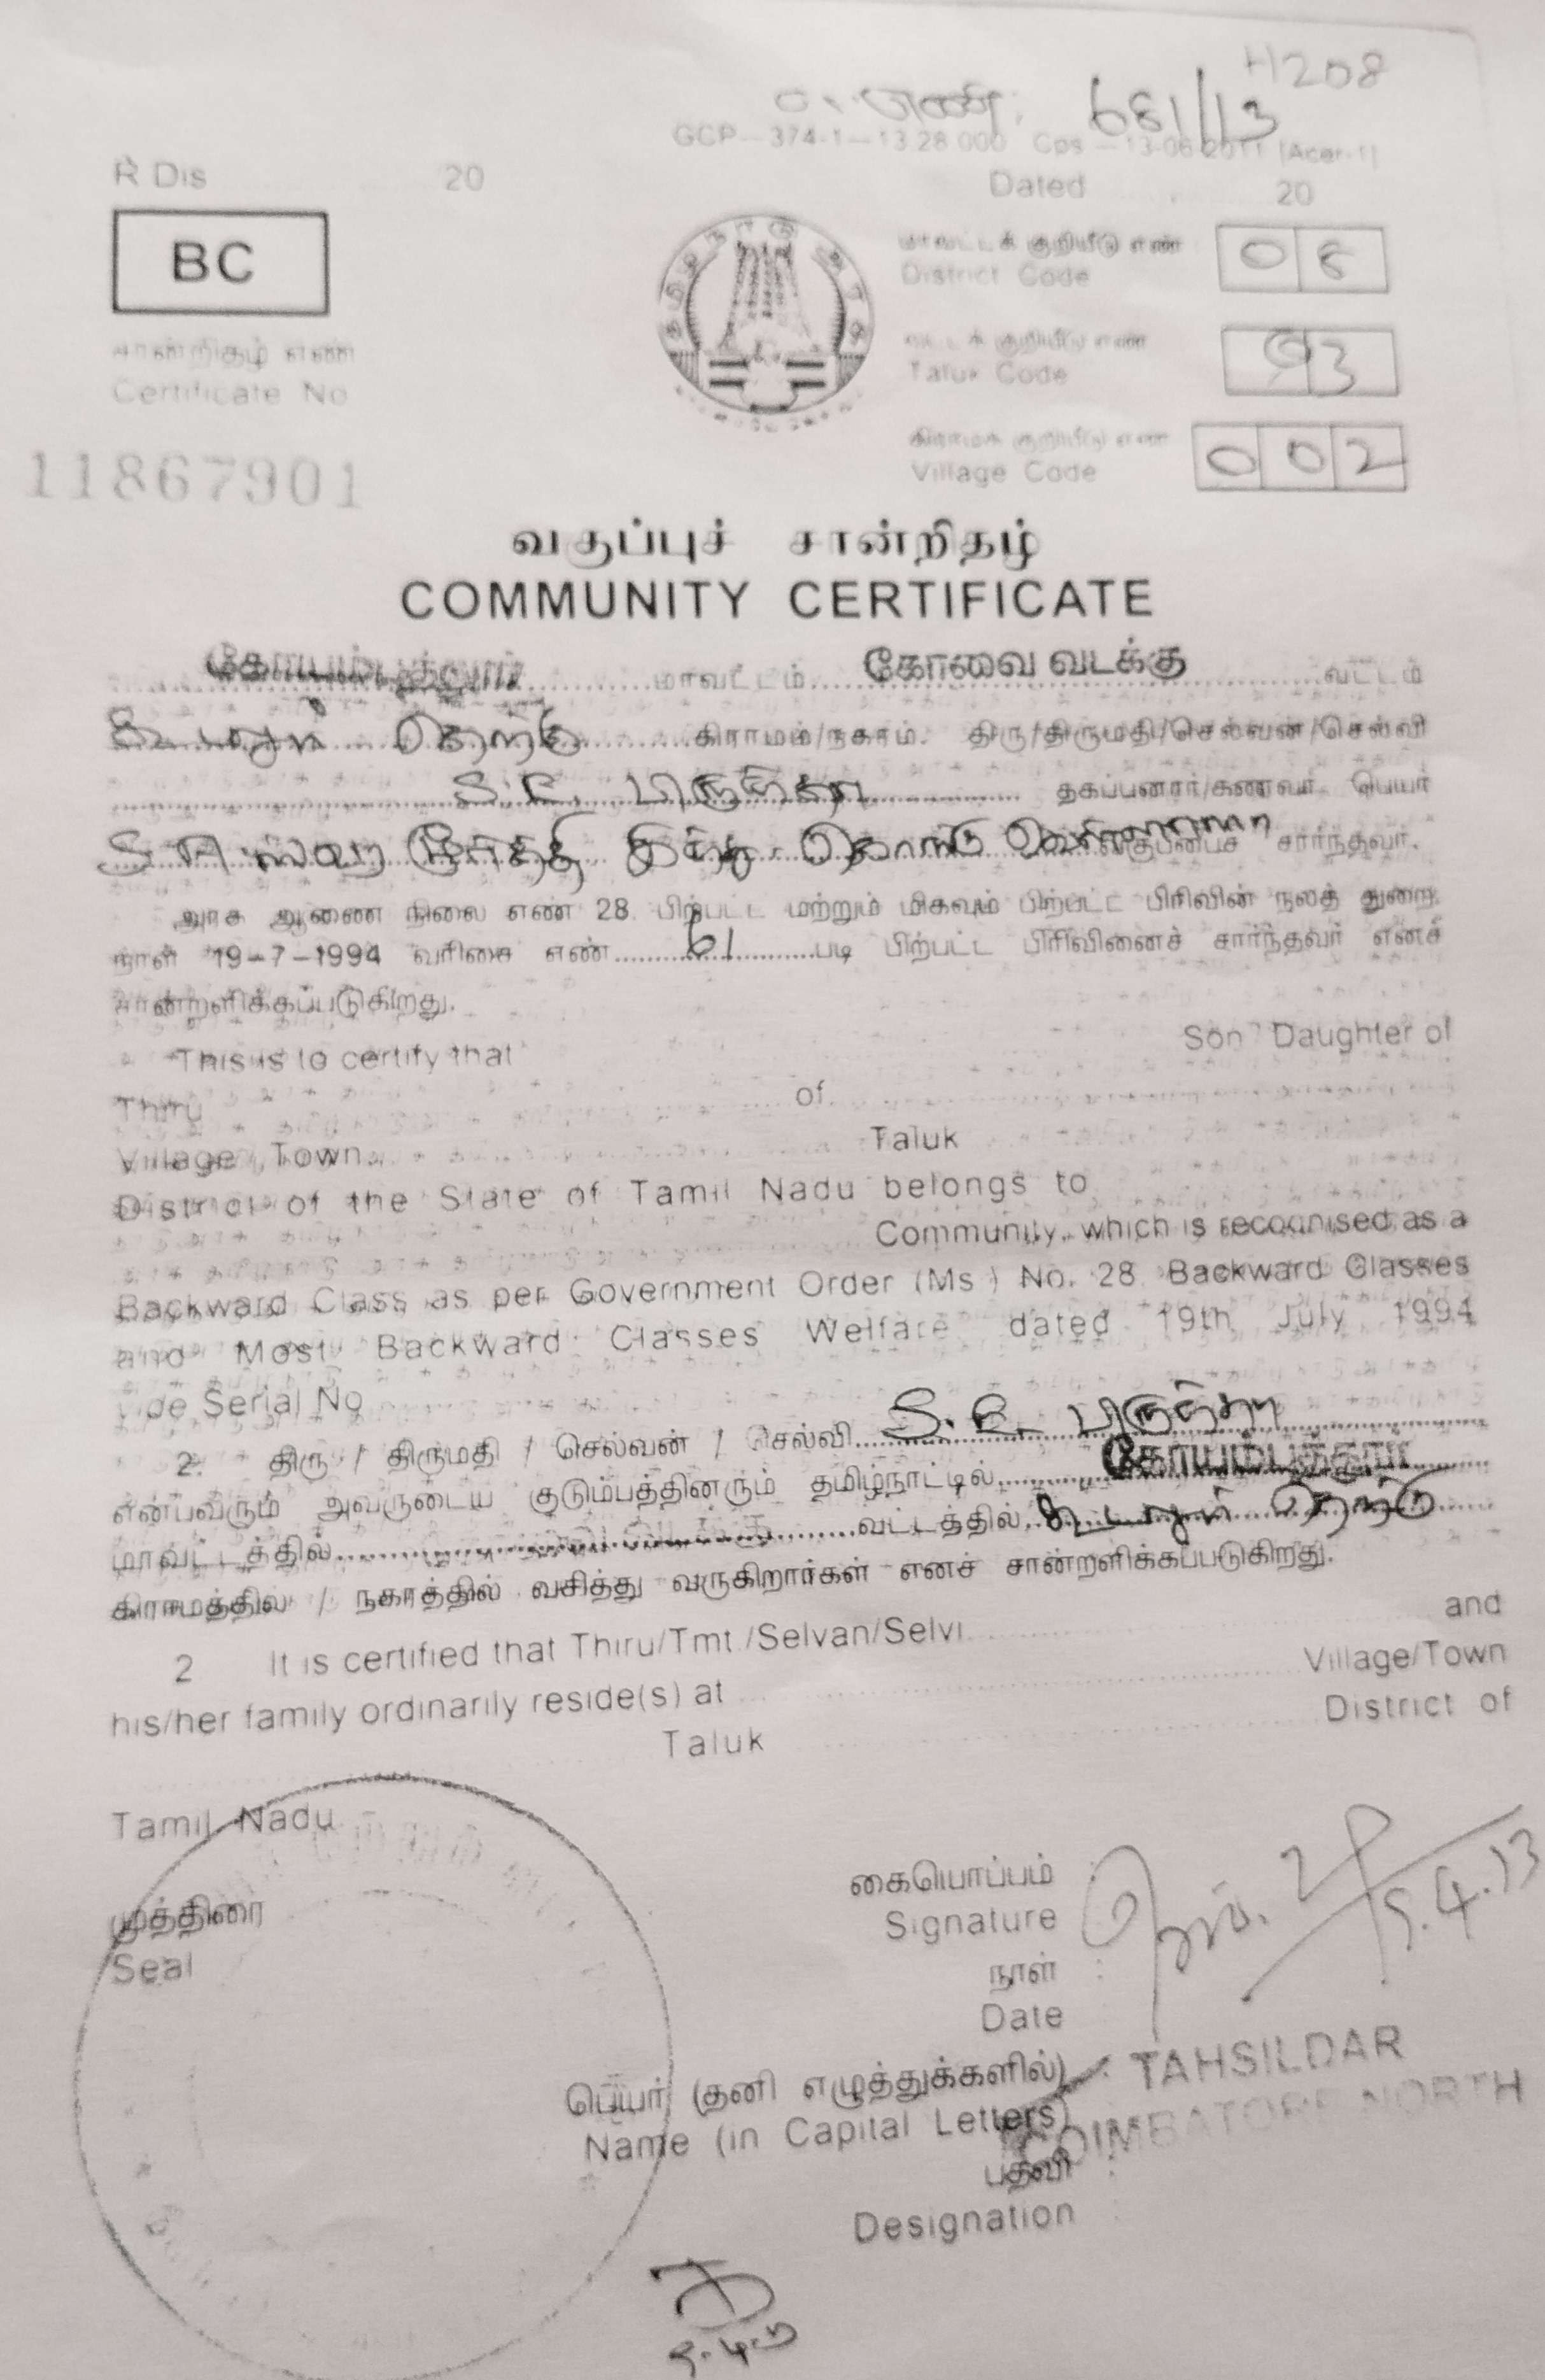 H208
681/13
GCP—374-1—13.28 000 Cps —13-06-2011 (Acer-1)
R Dis 20
Dated 20
BC
மாவட்டக் குறியீடு எண்
District Code
சான்றிதழ் எண்
Certificate No
வட்டக் குறியீடு எண்
Taluk Code
93
கிராமக் குறியீடு எண்
Village Code
002
11867901
வகுப்புச் சான்றிதழ்
COMMUNITY CERTIFICATE
கோயம்புத்தூர் மாவட்டம் கோவை வடக்கு வட்டம்
கூடலூர் தெற்கு கிராமம்/நகரம். திரு/திருமதி/செல்வன்/செல்வி
தகப்பனார்/கணவர் பெயர்
வகுப்பைச் சார்ந்தவர்.
அரசு ஆணை நிலை எண் 28 பிற்பட்ட மற்றும் மிகவும் பிற்பட்ட பிரிவின் நலத் துறை
நாள் 19-7-1994 வரிசை எண் 61 படி பிற்பட்ட பிரிவினைச் சார்ந்தவர் எனச்
சான்றளிக்கப்படுகிறது.
This is to certify that Son Daughter of
Thiru of
Village Town. Taluk
District of the State of Tamil Nadu belongs to
Community, which is recognised as a
Backward Class as per Government Order (Ms ) No. 28 Backward Classes
and Most Backward Classes Welfare dated 19th July 1994
vide Serial No
2. திரு / திருமதி / செல்வன் / செல்வி
என்பவரும் அவருடைய குடும்பத்தினரும் தமிழ்நாட்டில் கோயம்புத்தூர்
மாவட்டத்தில் வட்டத்தில் கூடலூர் தெற்கு
கிராமத்தில் / நகரத்தில் வசித்து வருகிறார்கள் எனச் சான்றளிக்கப்படுகிறது.
2 It is certified that Thiru/Tmt./Selvan/Selvi and
his/her family ordinarily reside(s) at Village/Town
Taluk District of
Tamil Nadu
கையொப்பம்
Signature
5.4.13
முத்திரை
Seal
நாள்
Date
பெயர் (தனி எழுத்துக்களில்) : TAHSILDAR
Name (in Capital Letters) COIMBATORE NORTH
பதவி
Designation